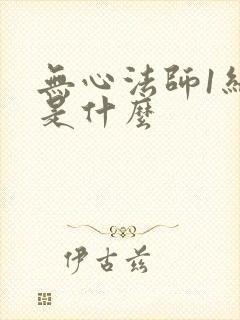 無心法師1
是什麼
伊古兹